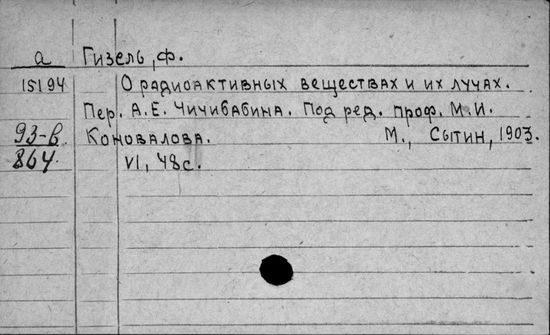 а Гизель, Ф.
15194 О радиоактивных веществах и их лучах.
Пер. А.Е. Чичибабина. Под ред. проф. М.И.
93-в Коновалова. М., Сытин, 1903.
864 VI, 48с.